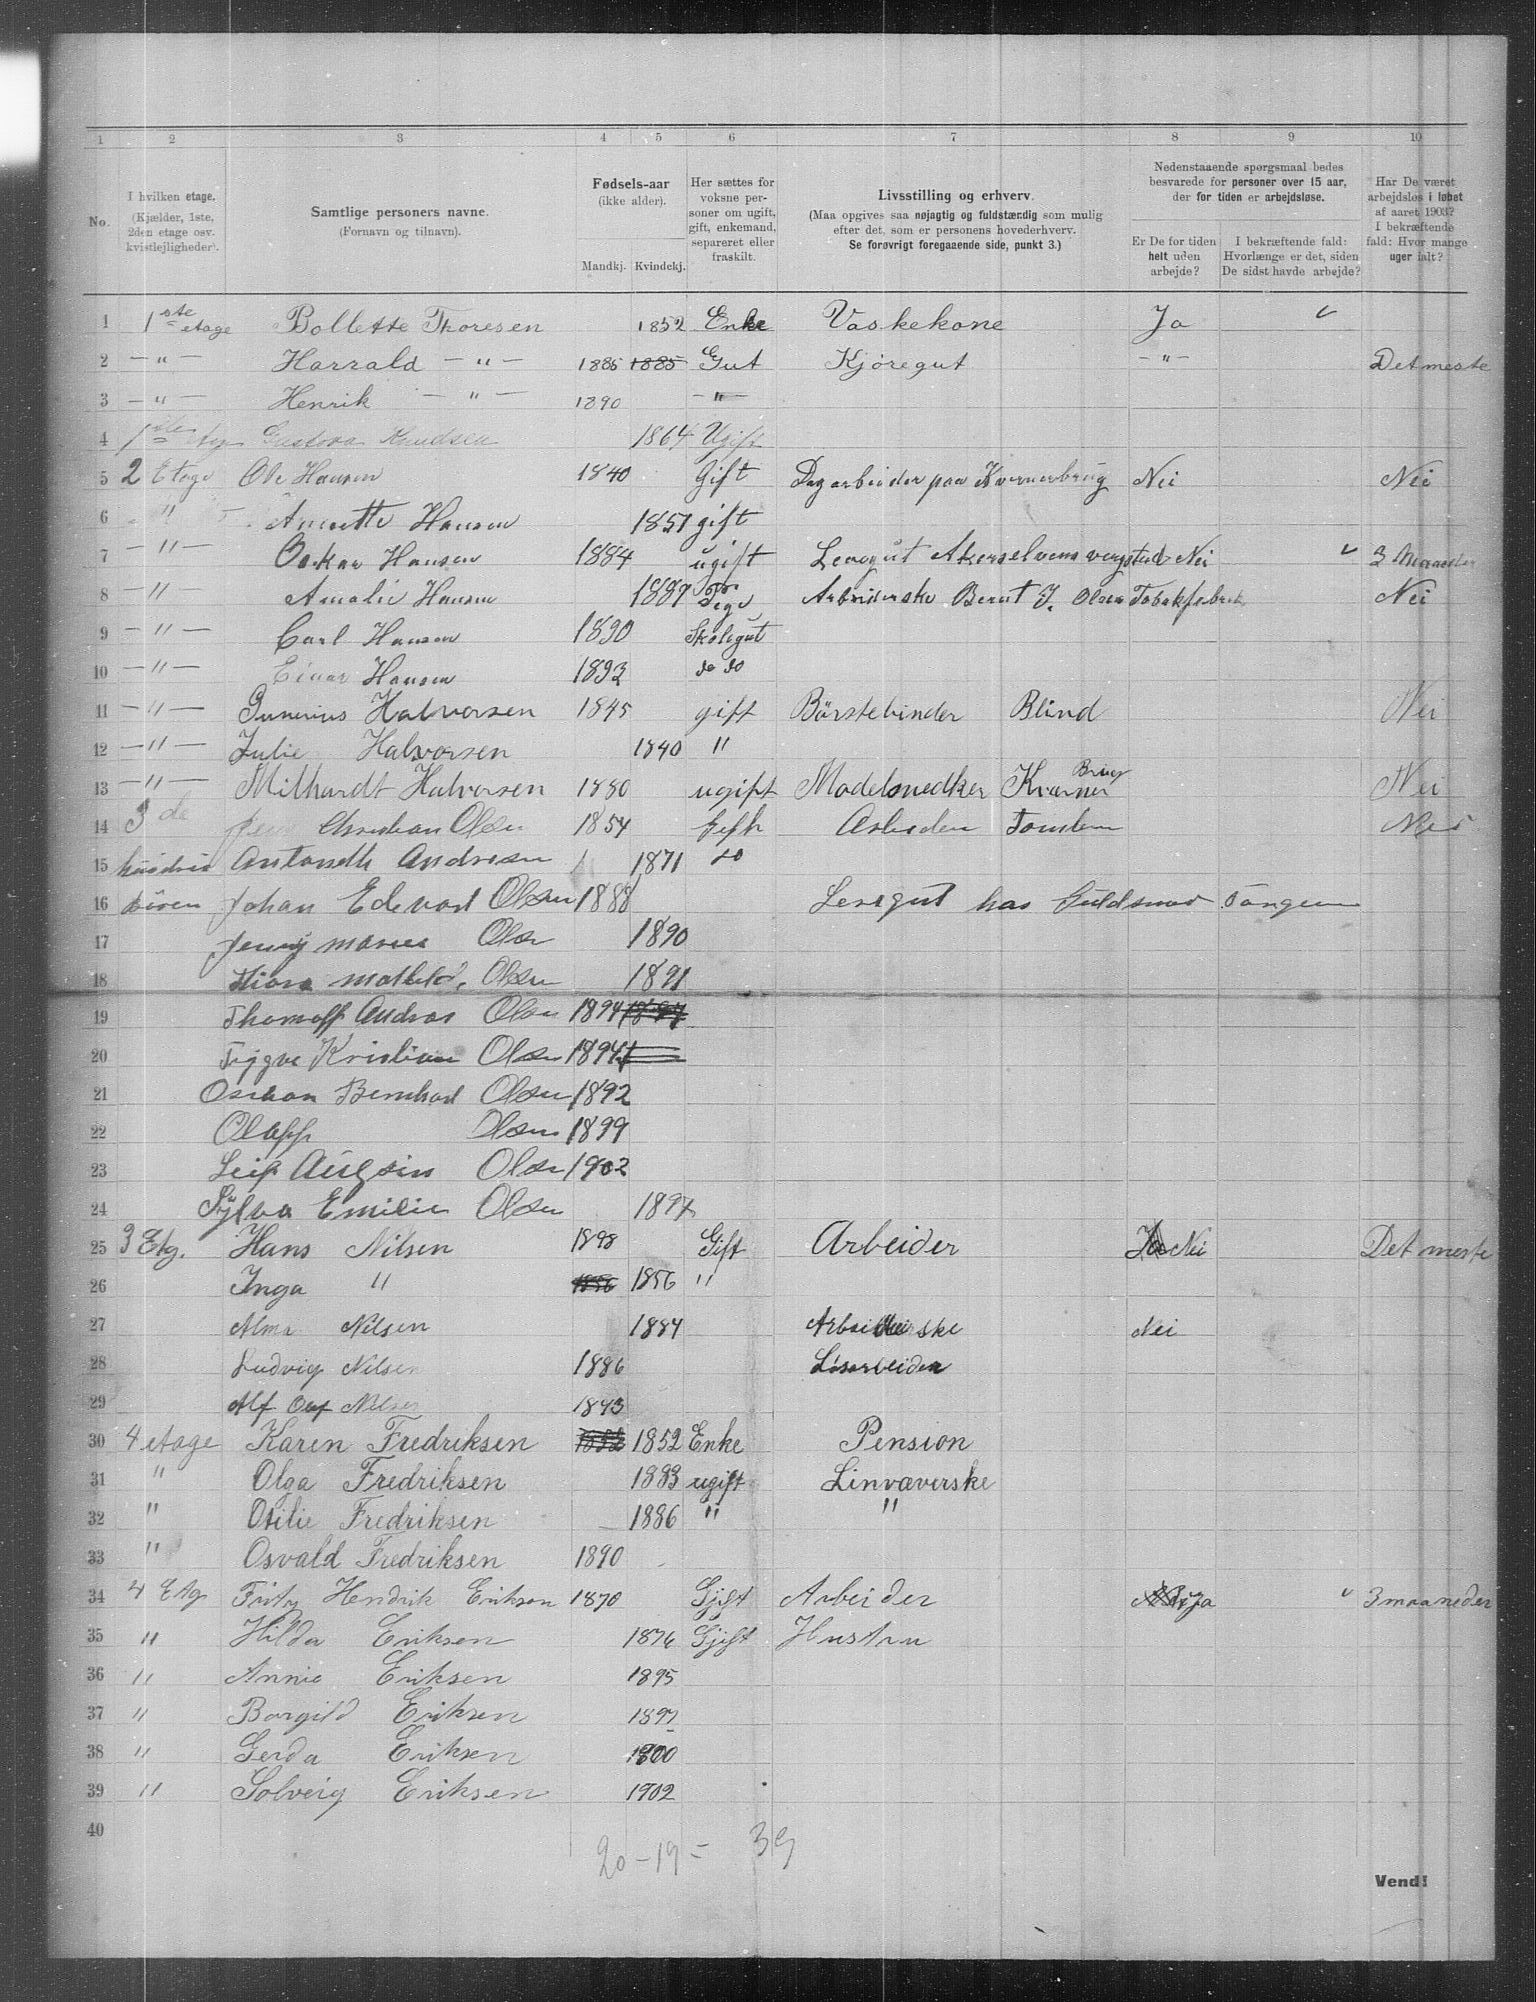 1 2 3 4 5 6 7 8 9 10
No.
I hvilken etage. (Kjælder, 1ste, 2den etage osv. kvistleiligheder).
Samtlige personers navne. (Fornavn og tilnavn).
Fødsels-aar (ikke alder). Mandkj. Kvindekj.
Her sættes for voksne personer om ugift, gift, enkemand, separeret eller fraskilt.
Livsstilling og erhverv. (Maa opgives saa nøjagtig og fuldstændig som mulig efter det, som er personens hovederhverv. Se forøvrigt foregaaende side, punkt 3.)
Nedenstaaende spørgsmaal bedes besvarede for personer over 15 aar, der for tiden er arbejdsløse.
Er De for tiden helt uden arbejde?
I bekræftende fald: Hvorlænge er det, siden De sidst havde arbejde?
Har De været arbejdsløs i løbet af aaret 1903? I bekræftende fald: Hvor mange uger ialt?
1 1ste etage Bollette Thoresen 1852 Enke Vaskekone Ja
2 — " — Harrald — " — 1885 1885 Gut Kjøregut — " — Det meste
3 — " — Henrik — " — 1890 — " —
4 1ste Gustava Knudsen 1864 Ugift
5 2 Etage Ole Hansen 1840 Gift Dagarbeider paa Kværnerbrug Nei Nei
6 " Annette Hansen 1851 gift
7 — " — Oskar Hansen 1884 ugift Læregut Akerselvens Nei 3 Maaneder
8 — " — Amalie Hansen 1887 Pige Arbeiderske Bernt J. Olsen Tobakfabrik Nei
9 — " — Carl Hansen 1890 Skolegut
10 — " — Einar Hansen 1893 do do
11 — " — Gunerius Halvorsen 1845 gift Børstebinder Blind Nei
12 — " — Julie Halvorsen 1840 "
13 — " — Milhardt Halvorsen 1880 ugift Modelsnedker Kværner Brug Nei
14 3de Christian Olsen 1854 Gift Nei
15 Antonette Andresen 1871 do
16 Johan Edevard Olsen 1888 Læregut hos Guldsmed
17 Jenny Marie Olsen 1890
18 Olsen 1891
19 Andreas Olsen 1894
20 Trygve Kristian Olsen 1894
21 Bernhard Olsen 1892
22 Olaff Olsen 1899
23 Leif Olsen 1902
24 Sylva Emilie Olsen 1897
25 3 Etg. Hans Nilsen Gift Arbeider Nei Det meste
26 Inga " 1856 1856 "
27 Alma Nilsen 1884 Arbeiderske Nei
28 Ludvig Nilsen 1886 Løsarbeider
29 Alf Nilsen
30 4 etage Karen Fredriksen 1852 1852 Enke Pension
31 " Olga Fredriksen 1883 ugift Linvæverske
32 " Otilie Fredriksen 1886 " "
33 " Osvald Fredriksen 1890
34 4 Etg Fritz Hendrik Erikson 1870 Gjift Arbeider Ja 3 maaneder
35 " Hilda Eriksen 1876 Gjift Hustru
36 " Annie Eriksen 1895
37 " Borgild Eriksen 1897
38 " Gerda Eriksen 1900
39 " Solveig Eriksen 1902
40
20 – 19 = 39
Vend!